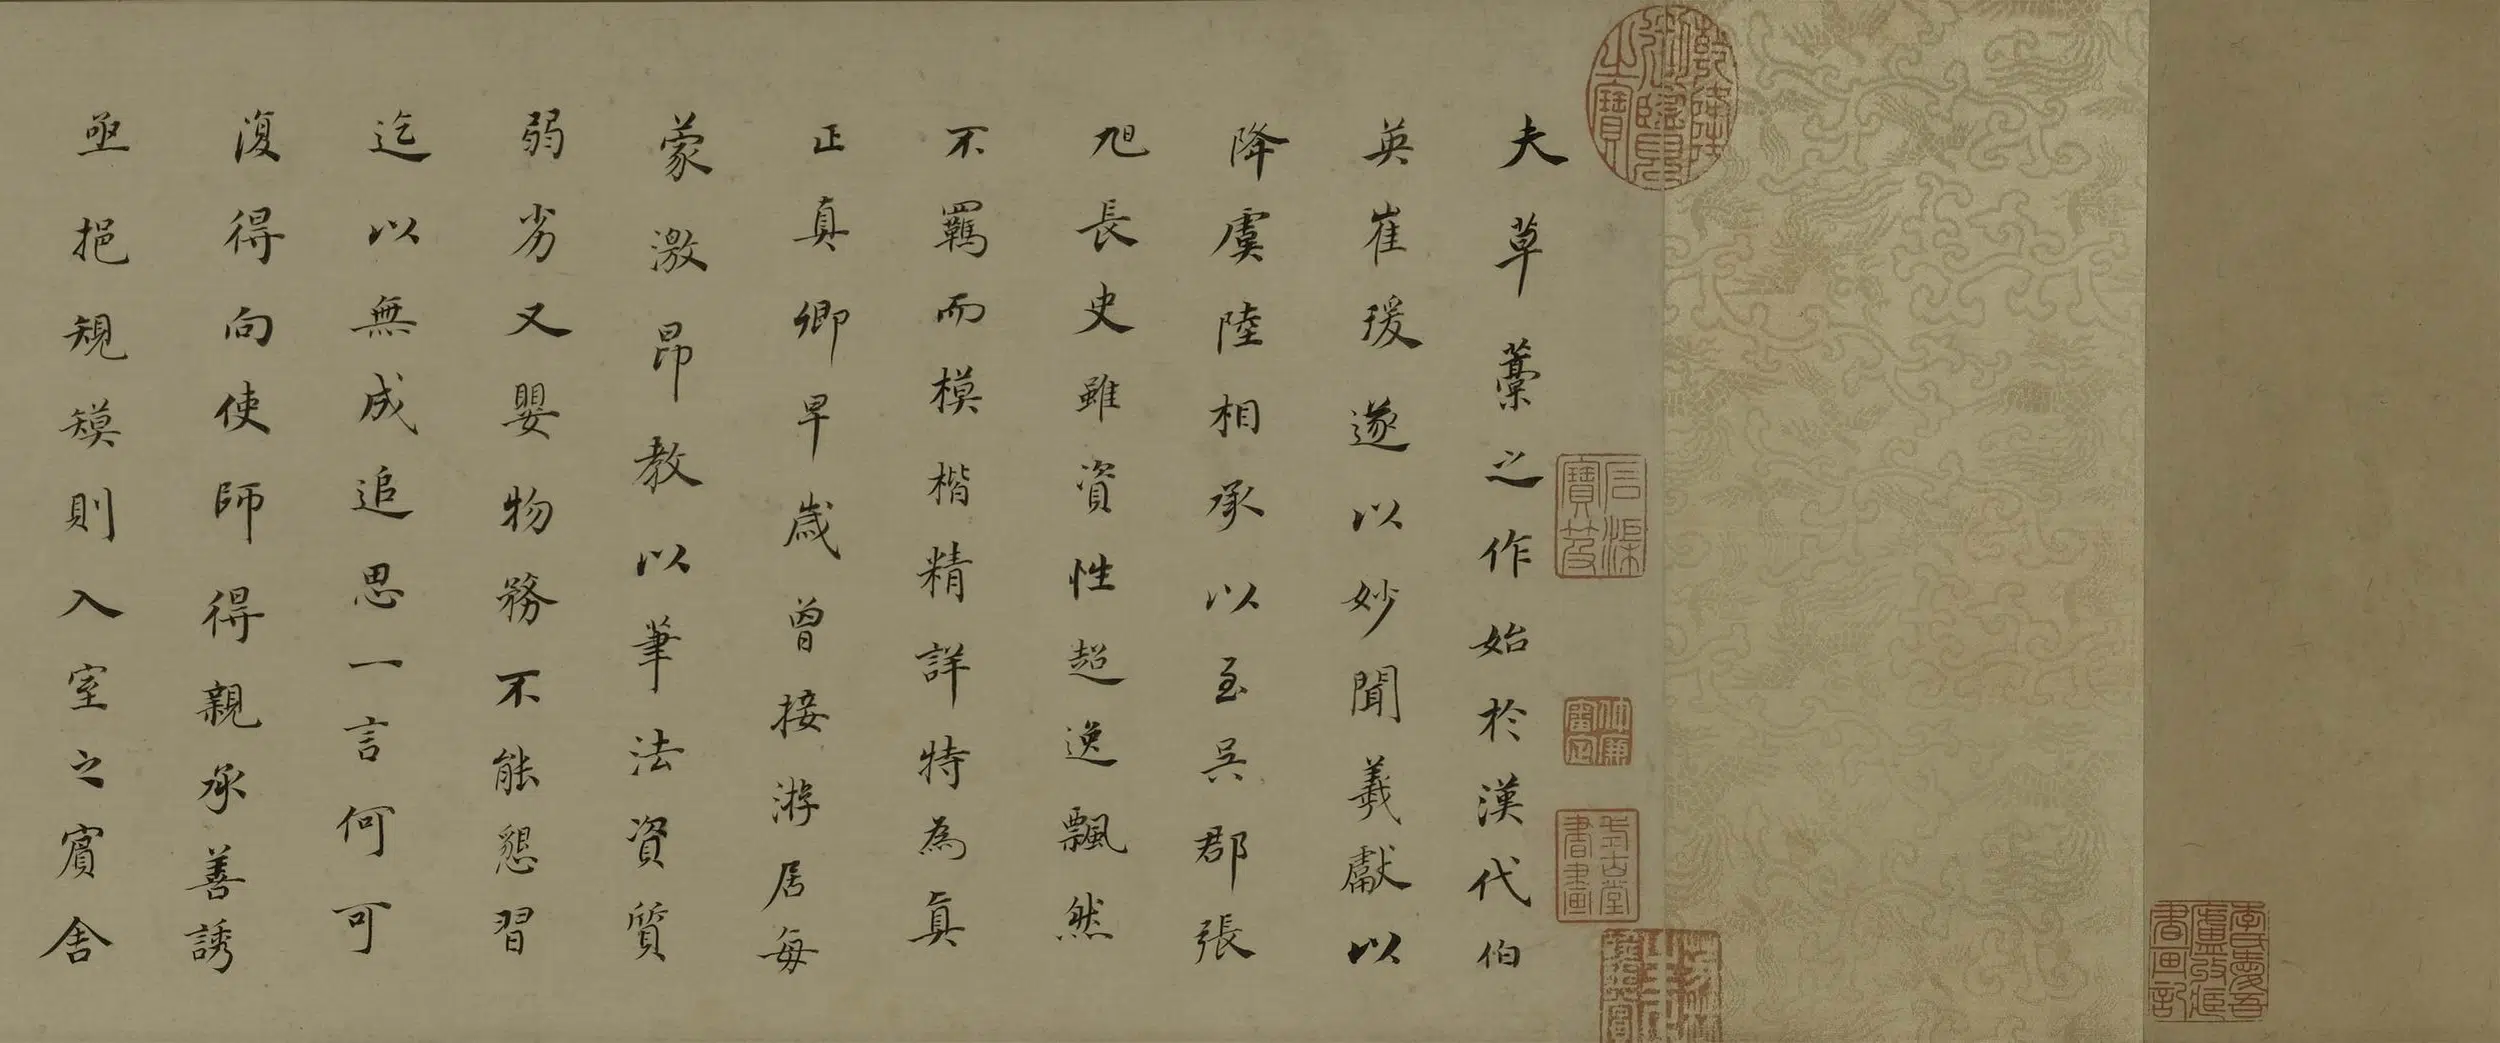 李氏愛吾廬收藏書画記
乾隆御覽之寶
石渠寶笈
夫草藁之作始於漢代伯
英崔瑗遂以妙聞羲獻以
降虞陸相承以至吳郡張
旭長史雖資性超逸飄然
不羈而模楷精詳特為真
正真卿早歲曾接游居每
蒙激昂教以筆法資質
弱劣又嬰物務不能懇習
迄以無成追思一言何可
復得向使師得親承善誘
亟挹規模則入室之賓舍